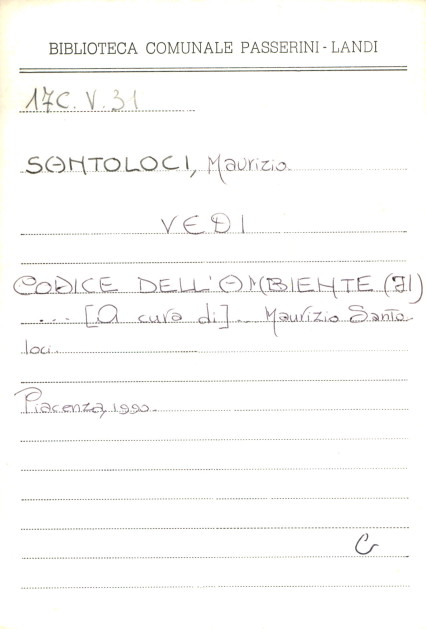 BIBLIOTECA COMUNALE PASSERINI-LANDI
17C.V.31
SANTOLOCI, Maurizio.
VEDI
CODICE DELL'AMBIENTE (Il)
... [A cura di]. Maurizio Santo
loci.
Piacenza, 1990.